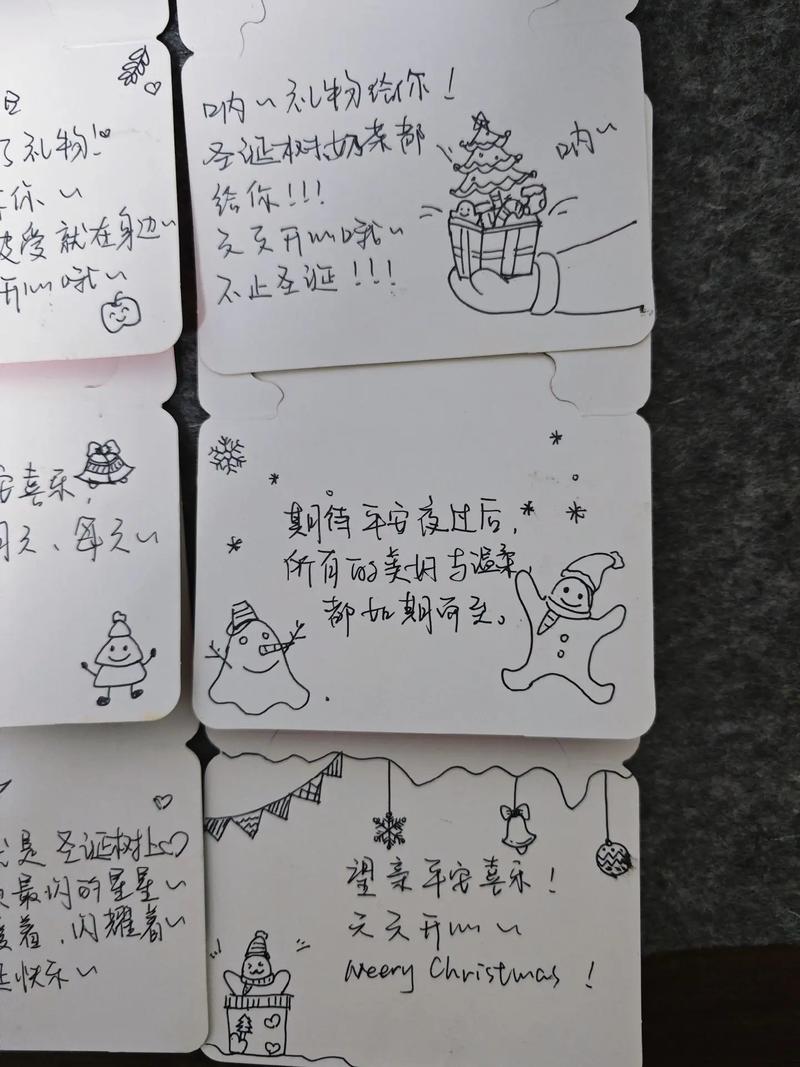 日
了礼物!
你~
被爱就在身边~
开心哦~
呐~礼物给你!
圣诞树、奶茶都
给你!!!
天天开心哦~
不止圣诞!!!
呐~
安喜乐,
明天、每天~
期待平安夜过后,
所有的美好与温柔
都如期而至。
是圣诞树上
最闪的星星~
着,闪耀着~
快乐~
望亲平安喜乐!
天天开心~
Meery Christmas!